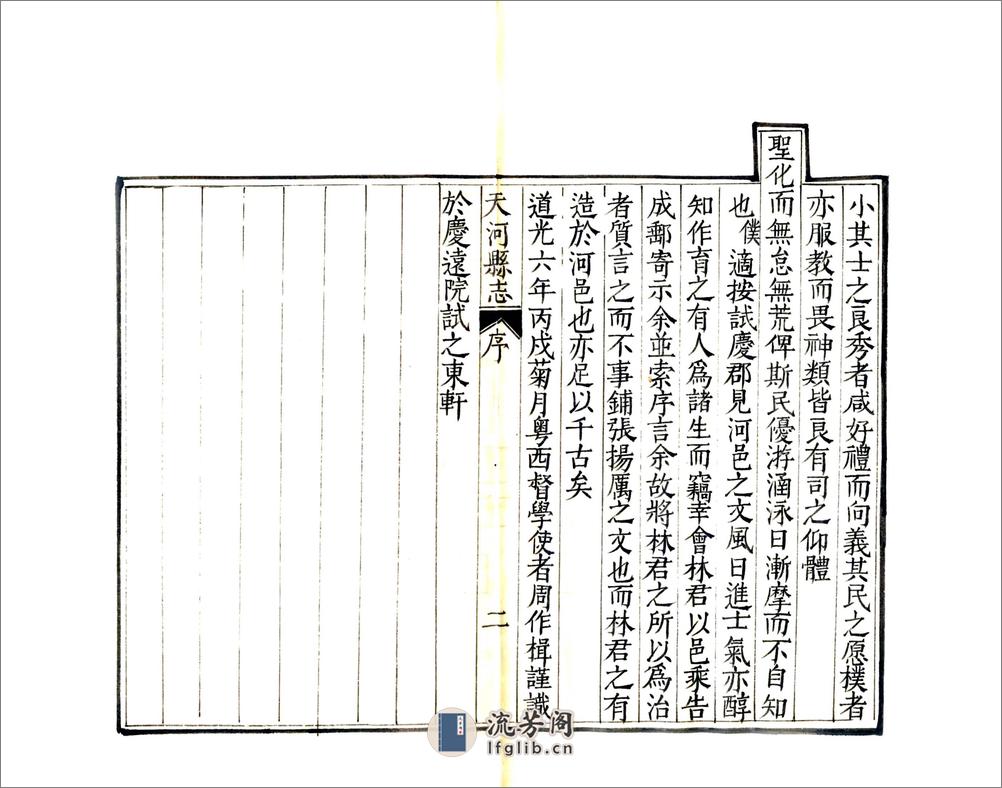 小其士之良秀者咸好禮而向義其民之愿樸者
亦服教而畏神類皆良有司之仰體
聖化而無怠無荒俾斯民優游涵泳日漸摩而不自知
也僕適按試慶郡見河邑之文風日進士氣亦醇
知作育之有人爲諸生而竊幸會林君以邑乘告
成郵寄示余並索序言余故將林君之所以爲治
者質言之而不事鋪張揚厲之文也而林君之有
造於河邑也亦足以千古矣
道光六年丙戌菊月粵西督學使者周作楫謹識
天河縣志 序 二
於慶遠院試之東軒
流芳阁
lfglib.cn